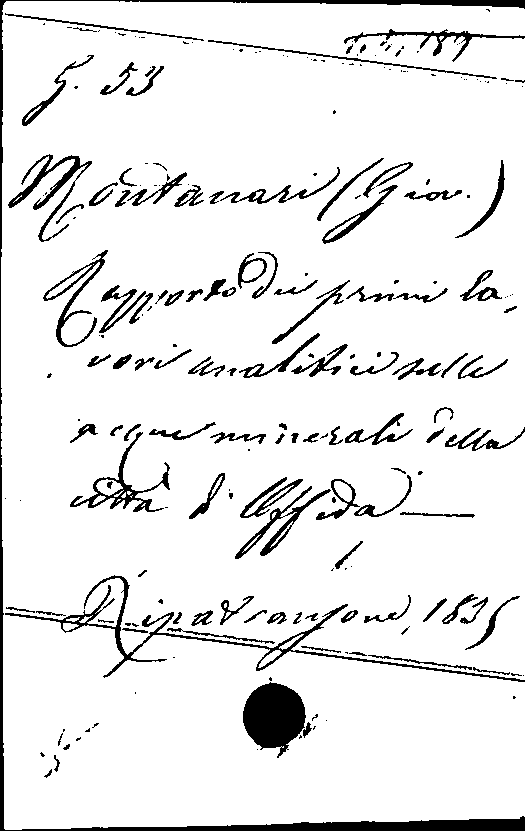 G. 53
Montanari (Giov.)
Rapporto dei primi la,
vori analitici sulle
acque minerali della
città di Offida —
Ripatransone, 1835